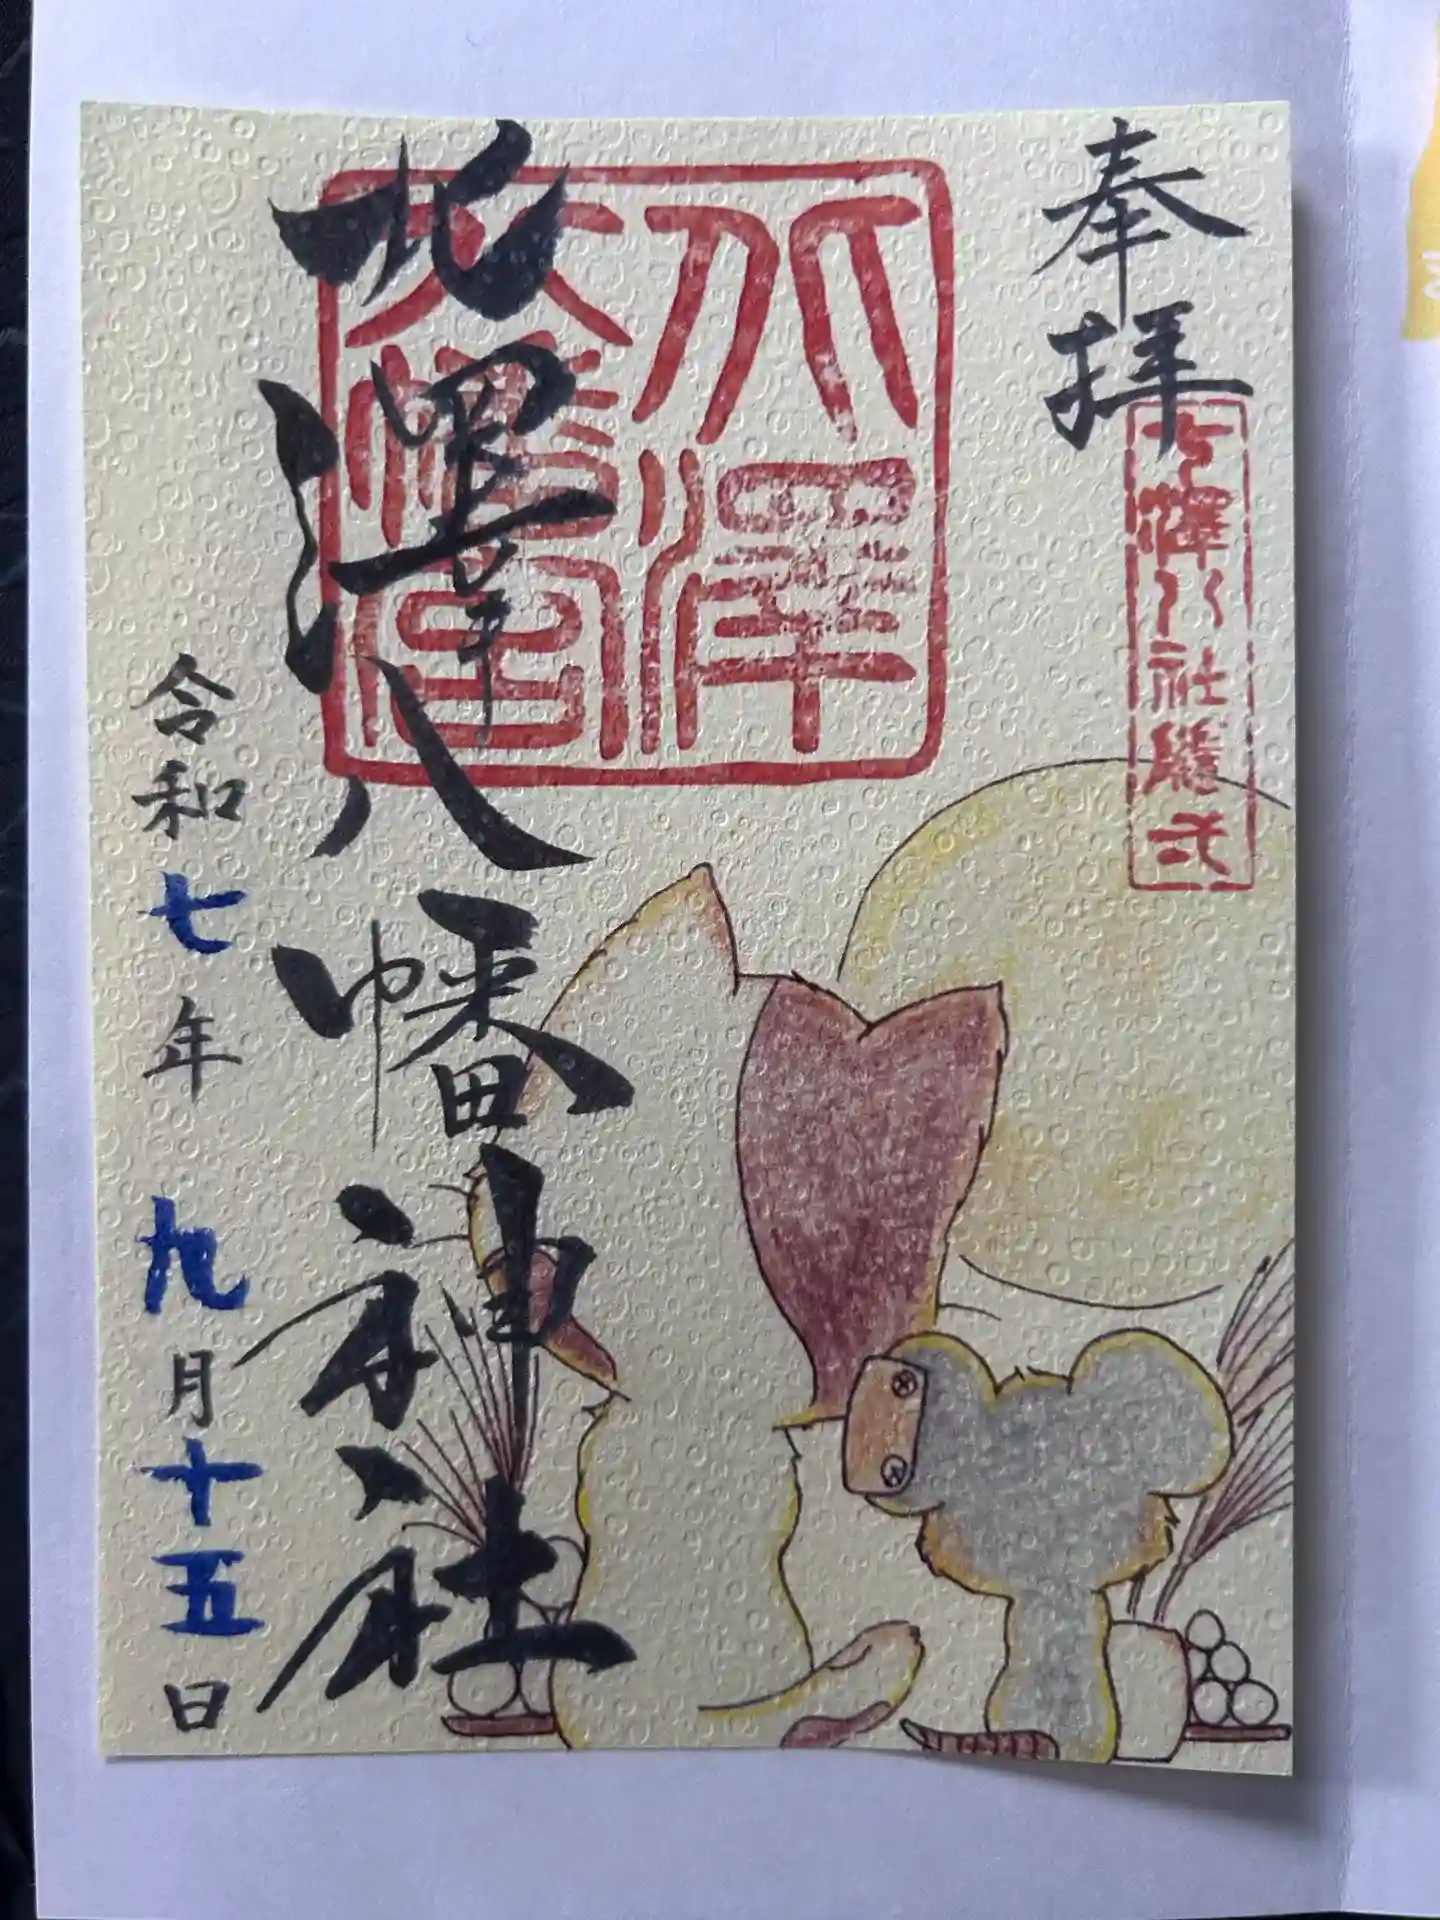 奉拝
七澤八社隨弌
北澤八幡宮
北澤八幡神社
令和七年九月十五日